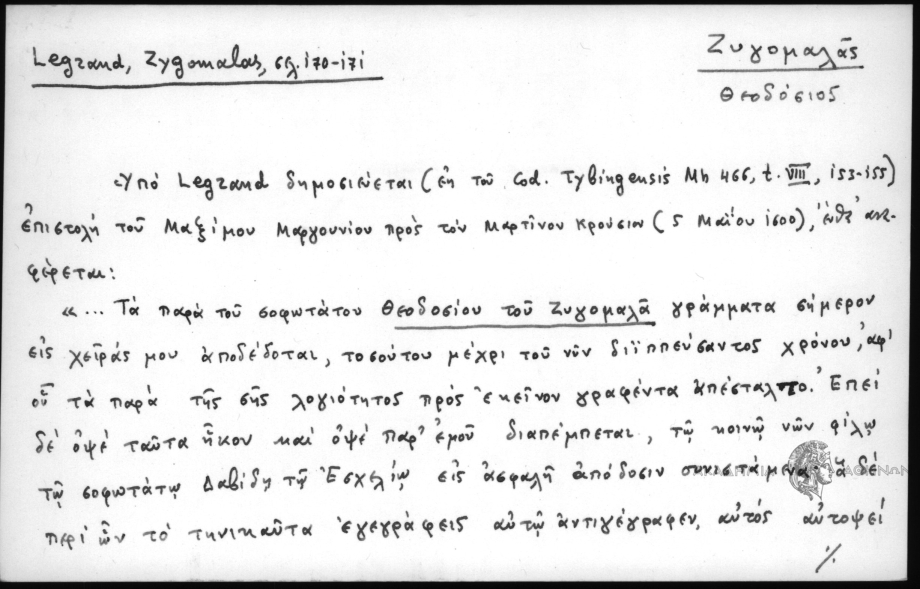 Legrand, Zygomalas, σελ. 170-171
Ζυγομαλᾶς
Θεοδόσιος
Ὑπό Legrand δημοσιεύεται (ἐκ τοῦ Cod. Tybingensis Mh 466, t. VIII, 153-155)
ἐπιστολή τοῦ Μαξίμου Μαργουνίου πρὸς τόν Μαρτῖνον Κρούσιον (5 Μαΐου 1600), ἔνθ' ἀνα-
φέρεται:
«... Τά παρά τοῦ σοφωτάτου Θεοδοσίου τοῦ Ζυγομαλᾶ γράμματα σήμερον
εἰς χεῖράς μου ἀποδέδοται, τοσούτου μέχρι τοῦ νῦν διϊππεύσαντος χρόνου, ἀφ'
οὗ τά παρά τῆς σῆς λογιότητος πρός ἐκεῖνον γραφέντα ἀπέσταλτο. Ἐπεί
δέ ὀψέ ταῦτα ἧκον καί ὀψέ παρ' ἐμοῦ διαπέμπεται, τῷ κοινῷ νῶν φίλῳ
τῷ σοφωτάτῳ Δαβίδῃ τῷ Ἐσχελίῳ εἰς ἀσφαλῆ ἀπόδοσιν συνιστάμενα· ἅ δέ
περί ὧν τό τηνικαῦτα ἐγεγράφεις αὐτῷ ἀντιγέγραφεν, αὐτός αὐτοψεί
./.
ΑΚΑΔΗΜΙΑ ΑΘΗΝΩΝ